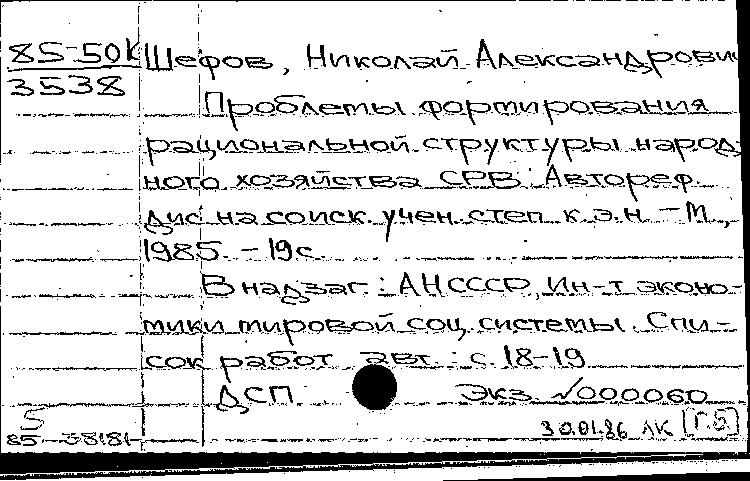 85-50к Шефов, Николай Александрович
3538
Проблемы формирования
рациональной структуры народ-
ного хозяйства СРВ: Автореф.
дис. на соиск. учен. степ. к.э.н. - М.,
1985. - 19 с.
В надзаг.: АН СССР, Ин-т эконо-
мики мировой соц. системы. Спи-
сок работ авт.: с. 18-19
ДСП Экз. №000060
5
85-38181 30.01.86 ЛК [г.б]